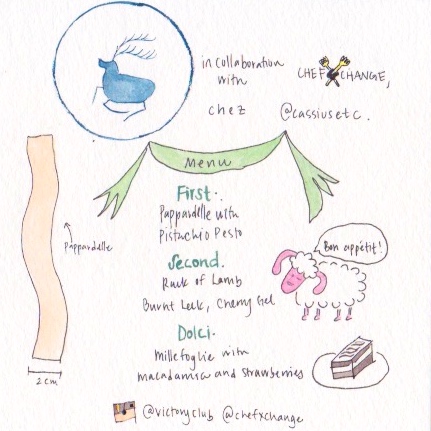 in collaboration
with
CHEF XCHANGE,
chez
@cassiusetc.
Menu
First.
Pappardelle with
Pistachio Pesto
Pappardelle
Second.
Rack of Lamb
Burnt Leek, Cherry Gel
Bon appétit!
Dolci.
Millefoglie with
macadamia and strawberries
2 cm
@victoryclub @chefxchange